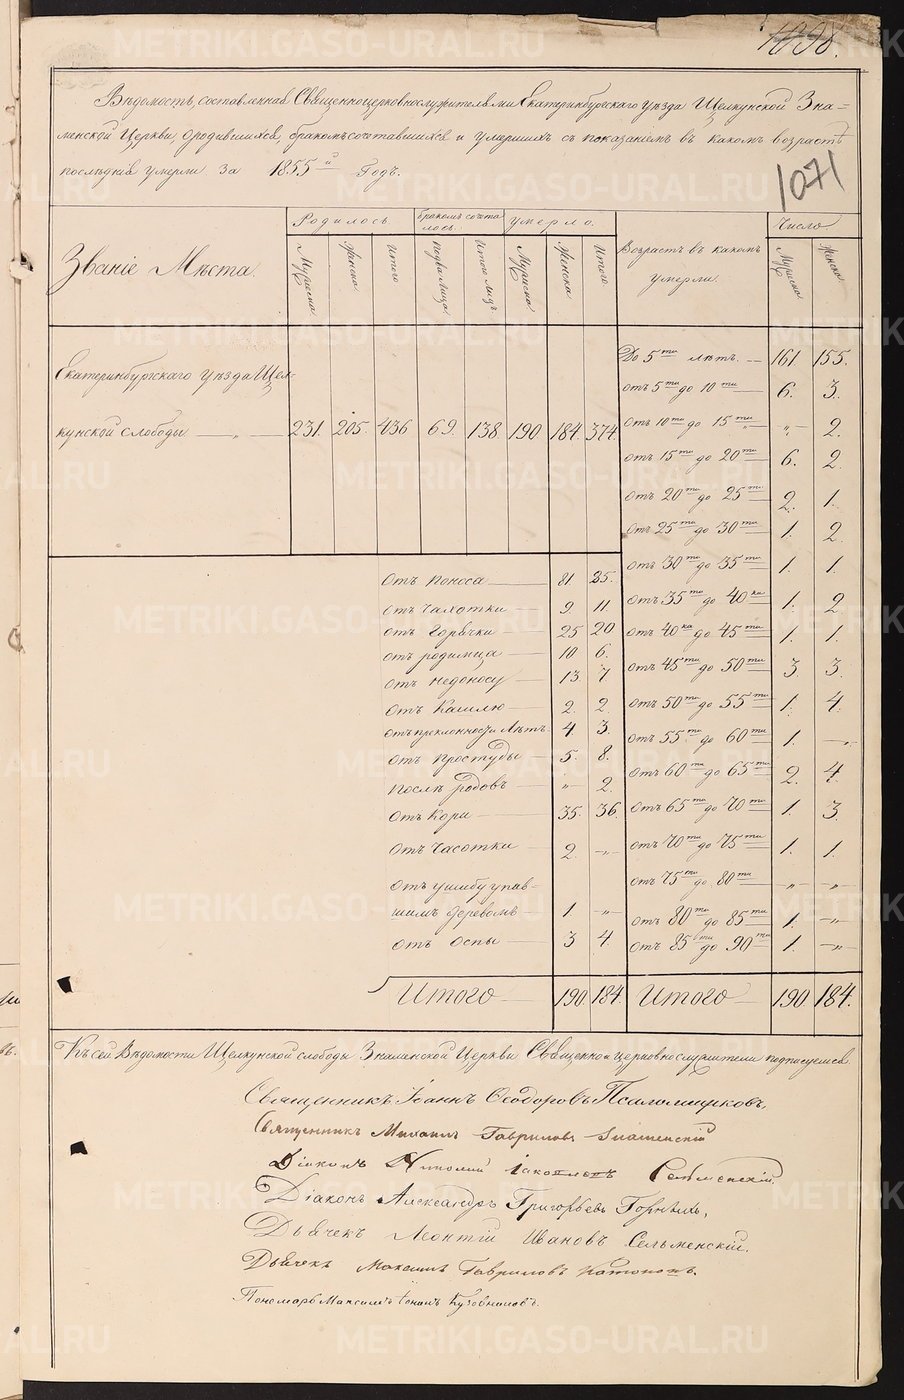 1071
Вѣдомость, составленная Священноцерковнослужителями Екатеринбургскаго уѣзда Щелкунской Зна=
менской Церкви, о родившихся, бракомъ сочетавшихся и умершихъ съ показаніемъ въ какомъ возрастѣ
послѣдніе умерли за 1855й Годъ.
Званіе Мѣста.
Родилось
Бракомъ сочеталось.
Умерло.
Возрастъ въ какомъ умерли.
Число
Мужеска Женска Итого Итого лицъ Мужеска Женска Итого Мужеска Женска
Екатеринбургскаго уѣзда Щел-
кунской слободы — „ — 231. 205. 436 69. 138. 190 184. 374.
До 5ти лѣтъ. — 161. 155.
отъ 5ти до 10ти 6. 3.
отъ 10ти до 15ти „ 2.
отъ 15ти до 20ти 6. 2.
отъ 20ти до 25ти 2. 1.
отъ 25ти до 30ти 1. 2
отъ 30ти до 35ти 1. 1.
отъ 35ти до 40ка 1. 2
отъ 40ка до 45ти 1. 1.
отъ 45ти до 50ти 3. 3.
отъ 50ти до 55ти 1. 4.
отъ 55ти до 60ти 1. — „
отъ 60ти до 65ти 2. 4.
отъ 65ти до 70ти 1. 3.
отъ 70ти до 75ти 1. 1.
отъ 75ти до 80ти — „ — — „ —
отъ 80ти до 85ти 1. — „
отъ 85ти до 90ти 1. — „
Итого — 190 184.
отъ поноса — 81 85.
отъ чахотки — 9. 11
отъ горячки — 25 20
отъ родимца 10 6.
отъ недоносу — 13 7
отъ кашлю — 2. 2.
отъ преклонности лѣтъ 4 3.
отъ простуды — 5. 8.
послѣ родовъ — „ 2.
отъ кори — 35. 36.
отъ часотки — 2. — „ —
отъ ушибу упав-
шимъ деревомъ — 1. — „
отъ оспы — 3 4.
Итого — 190. 184.
Къ сей Вѣдомости Щелкунской слободы Знаменской Церкви Священно и церковнослужители подписуемся.
Священникъ Іоаннъ Ѳеодоровъ Псаломщиковъ.
Священникъ Михаилъ Гавриловъ Знаменскій
Діаконъ Іаковлевъ
Діаконъ Александръ Григорьевъ Горныхъ.
Дьячекъ Леонтій Ивановъ Сельменскій.
Дьячекъ Максимъ Гавриловъ
Пономарь Максимъ Кузовниковъ.
METRIKI.GASO-URAL.RU